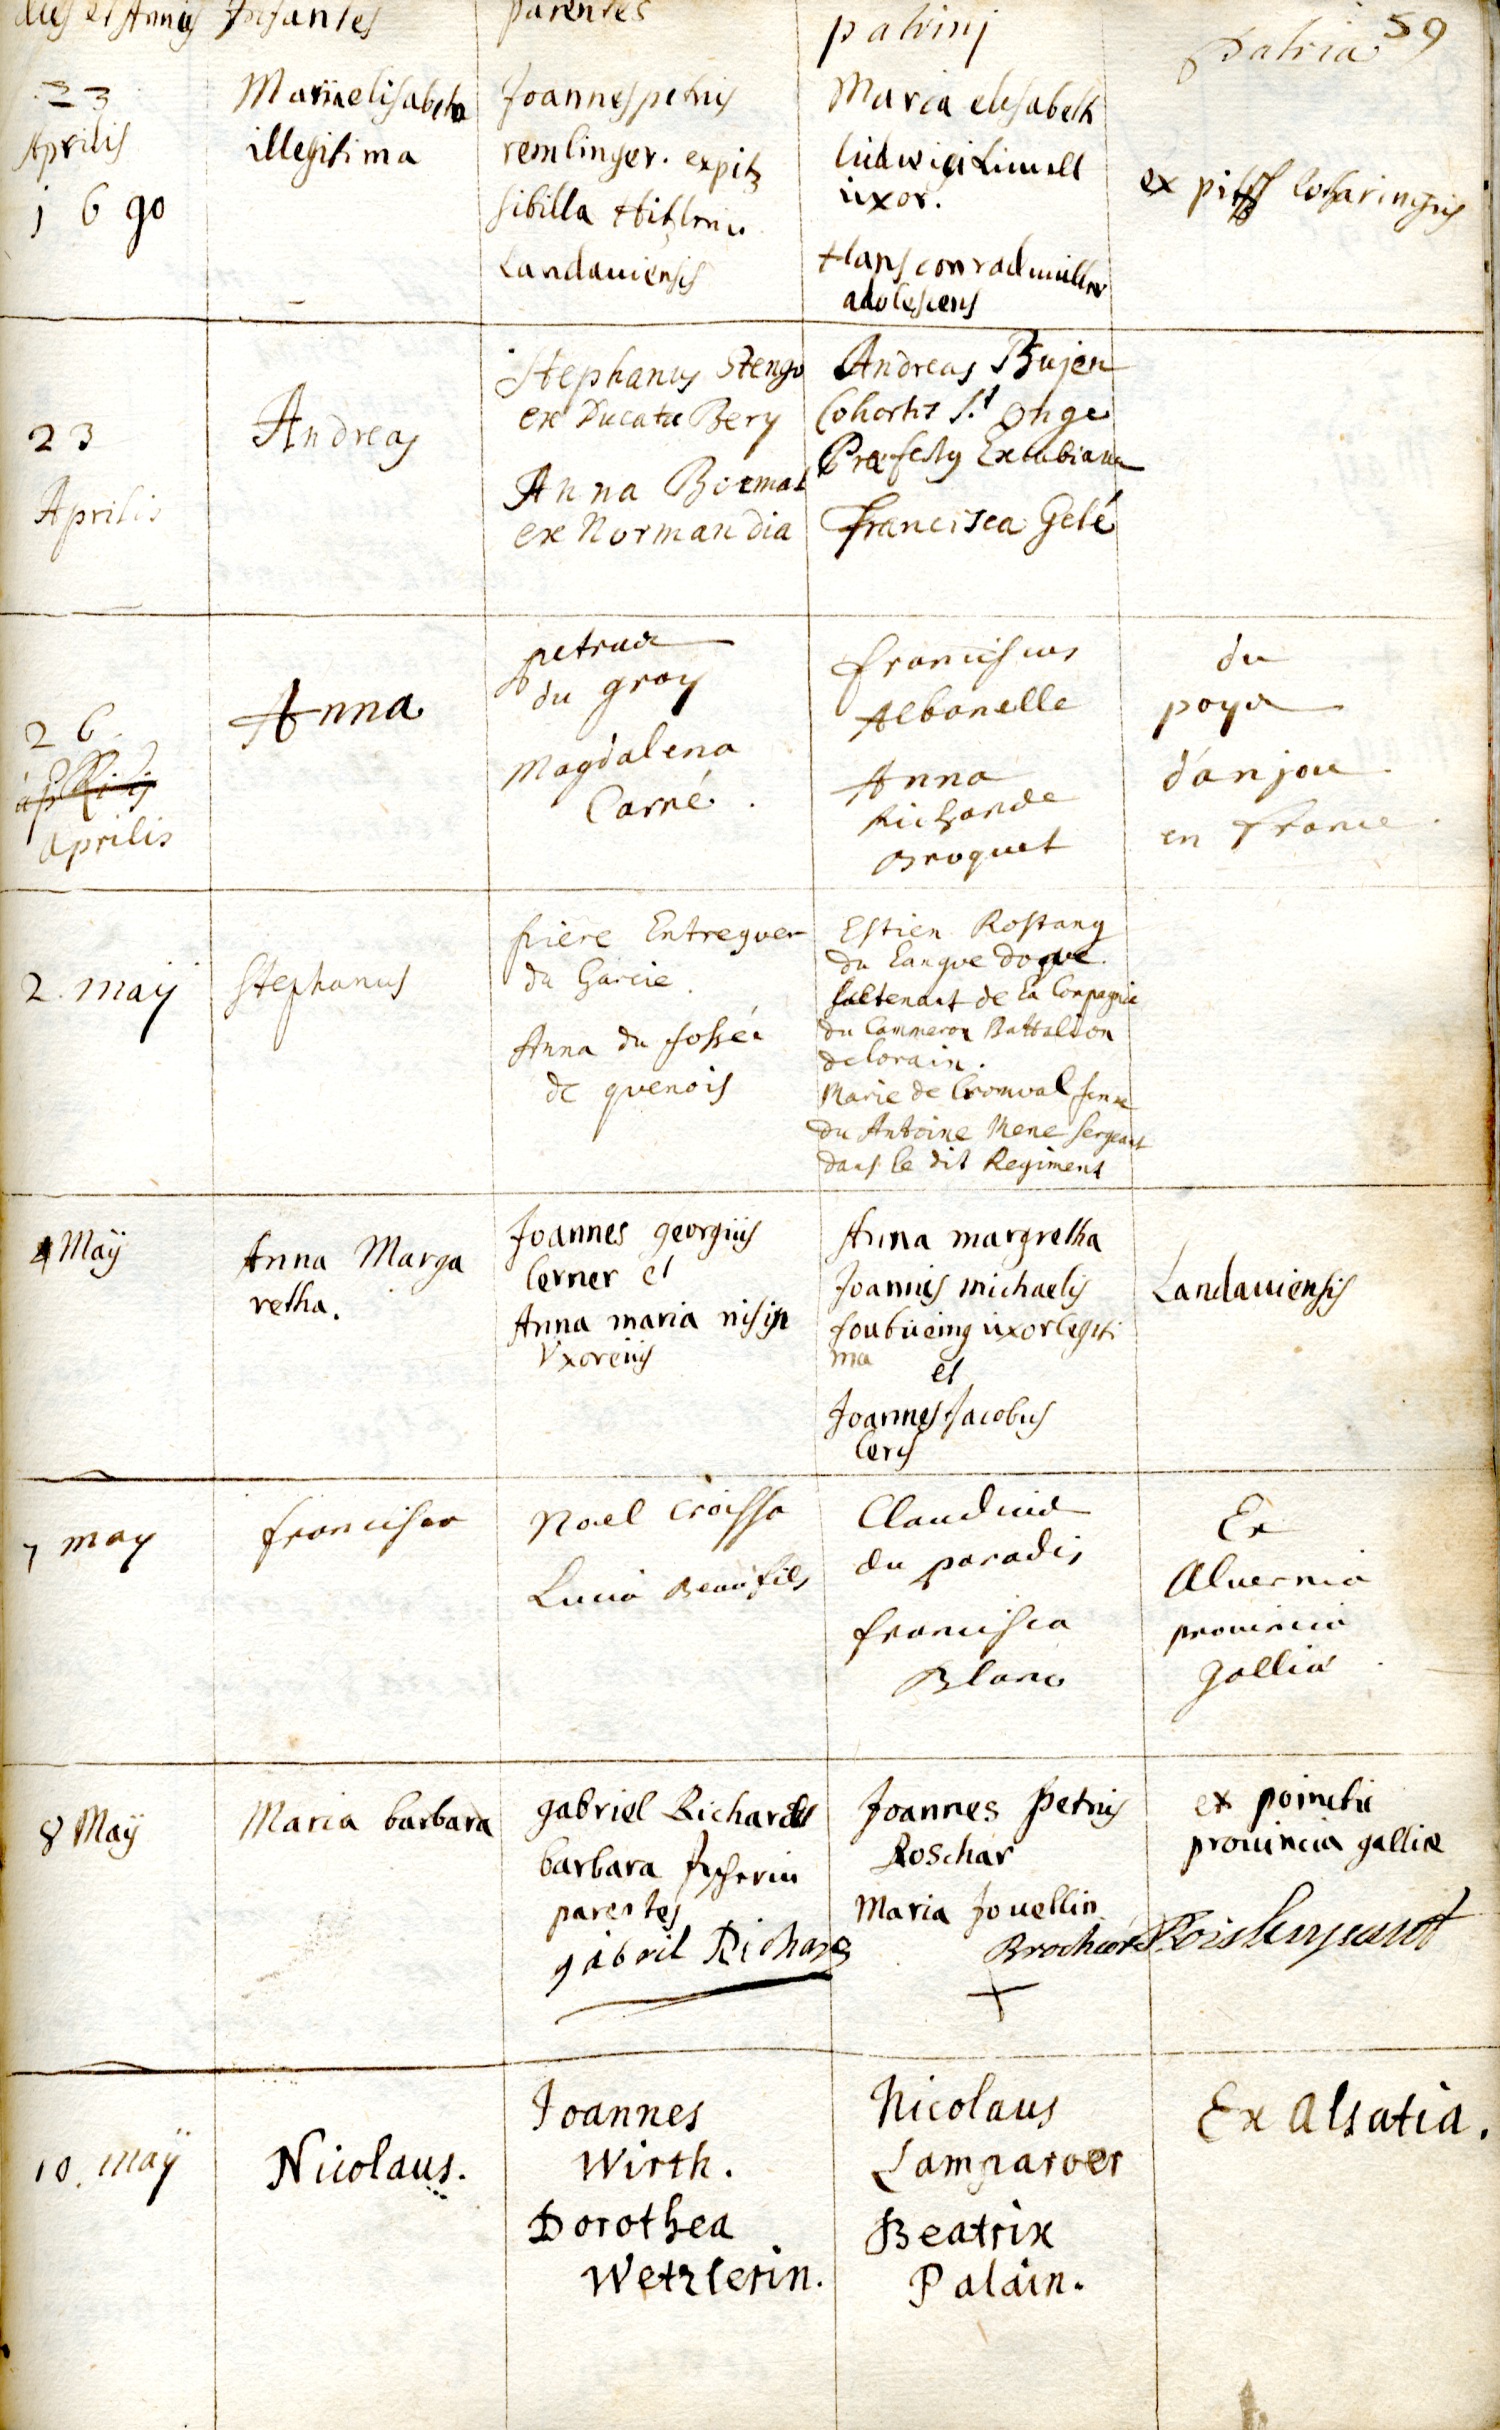 dies et Annus Infantes parentes patrini patria 59
23
Aprilis
1690
Maria elisabetha
illegitima
Joannes petrus
remlinger. ex pitz
sibilla
Landauiensis
Maria elisabeth
ludwigi
uxor.
Hans conrad müller
adolescens
ex pitsch lotharingus
23
Aprilis
Andreas
Stephanus Stengo
ex Ducatu Bery
Anna
ex Normandia
Andreas Bujen
Cohortis St. Onge
Præfectus Excubiarum
Francisca Gelé
26.
Aprilis
Anna
petrus
du gray
Magdalena
Carné.
franciscus
Albanelle
Anna
Richarde
Broquet
du
pays
d'anjou
en france.
2. maij
Stephanus
piere Entreguer
du Garcie.
Anna du fossée
de quenois
Estien Rostang
du Langue doque.
de la Compagnie
du Cammeron Battalion
de lorain.
Marie de Cromval femme
du Antoine Mene sergeant
dans le dit Regiment
4 Maij
Anna Marga
retha.
Joannes georgius
lerner et
Anna maria nisin
Vxor eius
Anna margretha
Joannis michaelis
uxor legiti
ma
et
Joannes Jacobus
Landauiensis
7 may
francisca
Noel Croissa
Lucia Beaufils
Claudius
du paradis
francisca
Blanc
Ex
Aluernia
prouincia
galliæ
8 Maij
Maria barbara
gabriel Richard
barbara
parentes
gabril Richard
Joannes Petrus
Roschar
Maria Jouellin
Brochar
ex
prouincia galliæ
10. maij
Nicolaus.
Joannes
Wirth.
Dorothea
Wetzlerin.
Nicolaus
Lamparder
Beatrix
Palain.
Ex Alsatia.